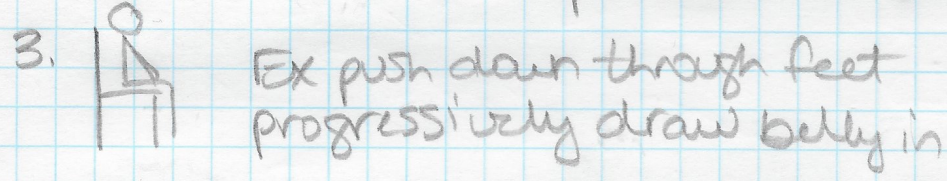 3. Ex push down through feet
progressively draw belly in